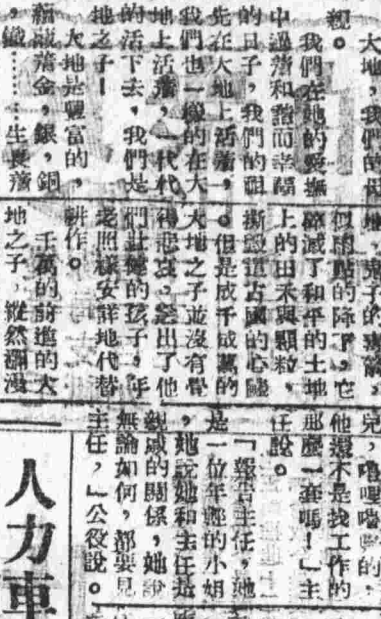 大地，我們的母
親。
我們在她的愛撫
中過着和諧而幸福
的日子，我們的祖
先在大地上活着，
我們也一樣的在大
地上活着，一代代
的活下去，我們是
地之子！
大地是豐富的，
蘊藏着金，銀，銅
，鐵……生長着
地，鬼子的
似雨點的降下，它
毀滅了和平的土地
上的田禾與顆粒，
撕毀這古國的心臟
。但是成千成萬的
大地之子並沒有覺
得悲哀，送出了他
們壯健的孩子，年
老照樣安詳地代替
耕作。
千萬的前進的大
地之子，縱然瀰漫
兒，嘻哩嘻的，
他還不是找工作的
那麼一套嗎！」主
任說。
「報告主任，她
是一位年輕的小姐
，她說她和主任是
親戚的關係，她說
無論如何，都要見
主任，」公役說。
人力車